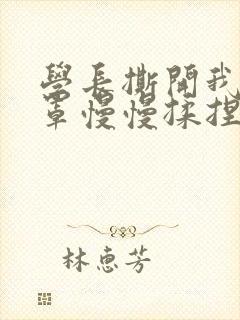 學長撕開我
罩慢慢揉捏
林惠芳